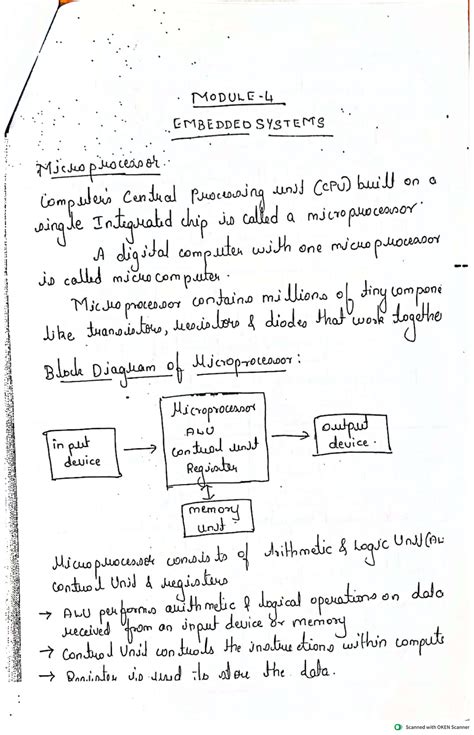 MODULE-4
EMBEDDED SYSTEMS
Microprocessor.
Computer's Central Processing unit (CPU) built on a
single Integrated chip is called a microprocessor.
A digital computer with one microprocessor
is called microcomputer.
Microprocessor contains millions of tiny compone
like transistors, resistors & diodes that work togethe
Block Diagram of Microprocessor:
input
device
Microprocessor
ALU
control unit
Register
output
device.
memory
unit
Microprocessor consists of Arithmetic & Logic Unit (AL
control Unit & registers
→ ALU performs arithmetic & logical operations on data
received from an input device or memory
→ Control Unit controls the instructions within compute
→ Register is used to store the data.
Scanned with OKEN Scanner